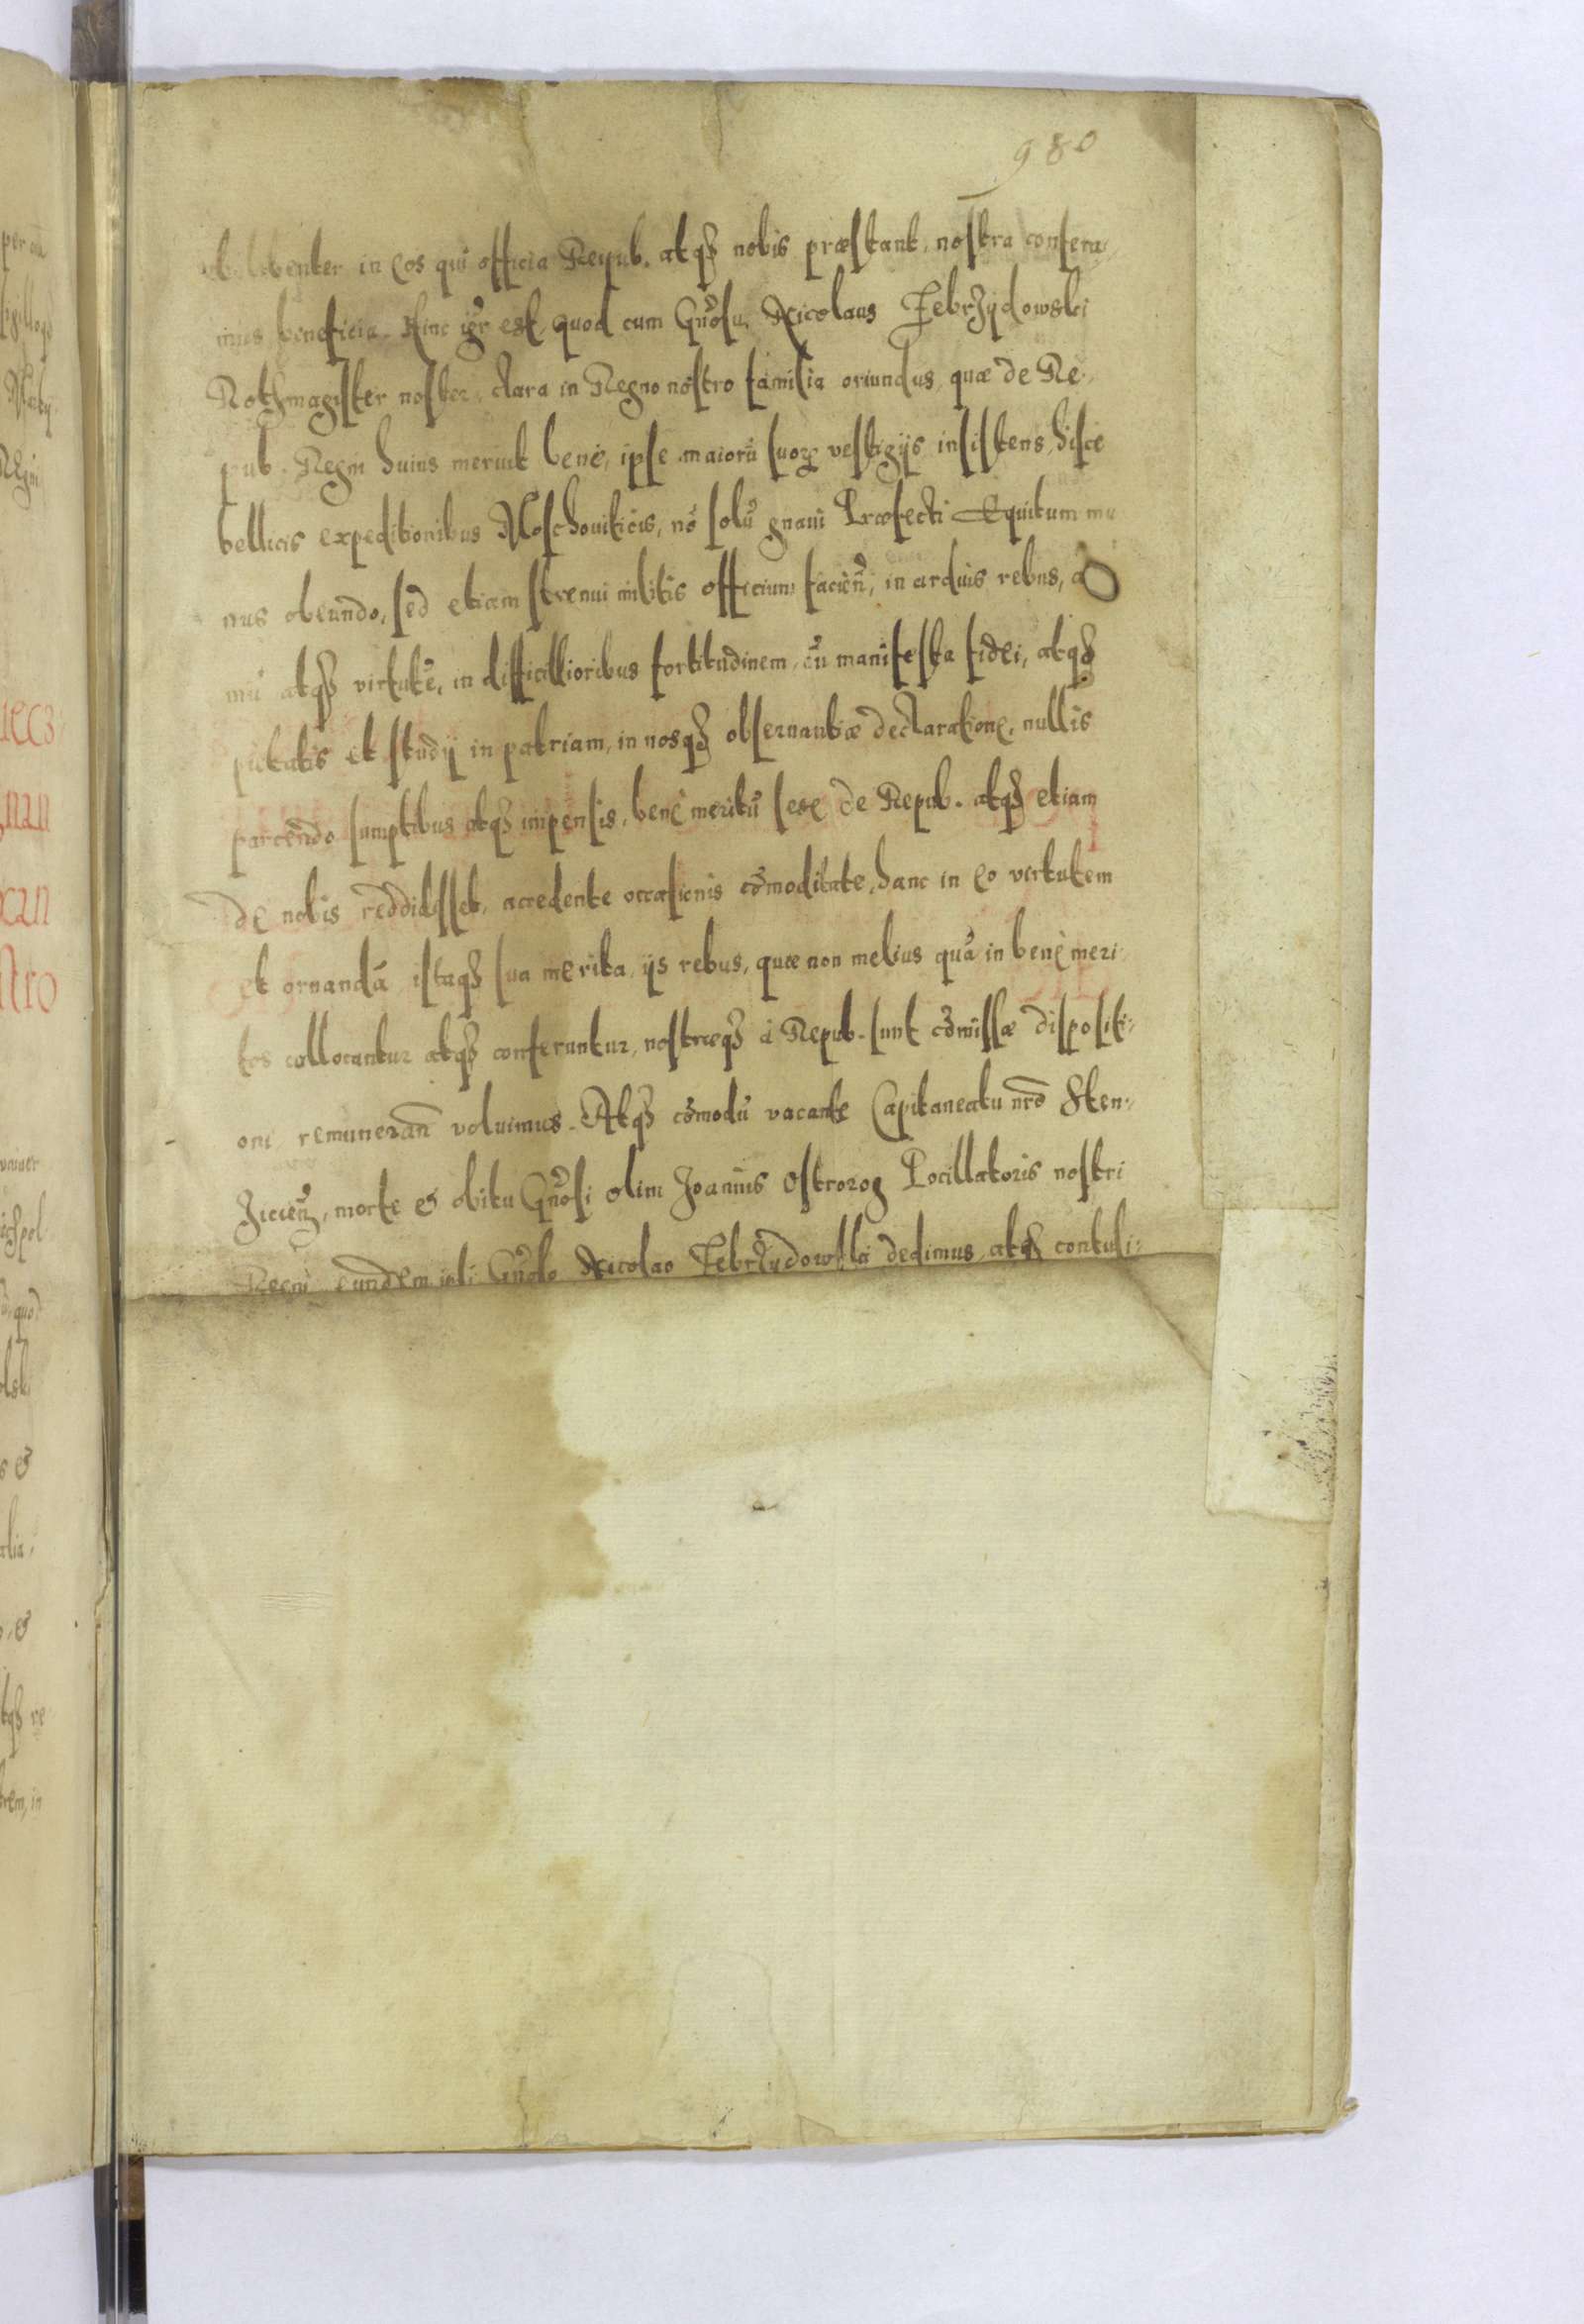 980
libenter in eos qui officia Reipub. atqʒ nobis præstant, nostra confera-
mus beneficia. Hinc igr est, quod cum Gnosus Nicolaus Zebrzydowski
Rothmagister noster, clara in Regno nostro familia oriundus, quæ de Re-
pub. Regni huius meruit bene, ipse maiorū suorꝝ vestigijs insistens, hisce
bellicis expeditionibus Moschouiticis, nō solū gnaui Præfecti Equitum mu
nus obeundo, sed etiam strenui militis officium facien̄, in arduis rebus, a
mū atqʒ virtutē, in difficillioribus fortitudinem, cū manifesta fidei, atqʒ
pietatis et studij in patriam, in nosqʒ obseruantiæ declaratione, nullis
parcendo sumptibus atqʒ impensis, benè meritū sese de Repub. atqʒ etiam
de nobis reddidisset, accedente occasionis cōmoditate, hanc in eo virtutem
et ornandā istaqʒ sua merita, ijs rebus, quæ non melius quā in benè meri
tos collocantur atqʒ conferuntur, nostræqʒ à Repub. sunt cōmissæ dispositi-
oni remuneran̄ voluimus. Atqʒ cōmodū vacante Capitaneatu nrō Sten-
ziciēn̄, morte & obitu Gnōsi olim Joannis Ostrorog Pocillatoris nostri
Regni eundem ipsi Gnōso Nicolao Zebrzydowski dedimus, atqʒ contuli-